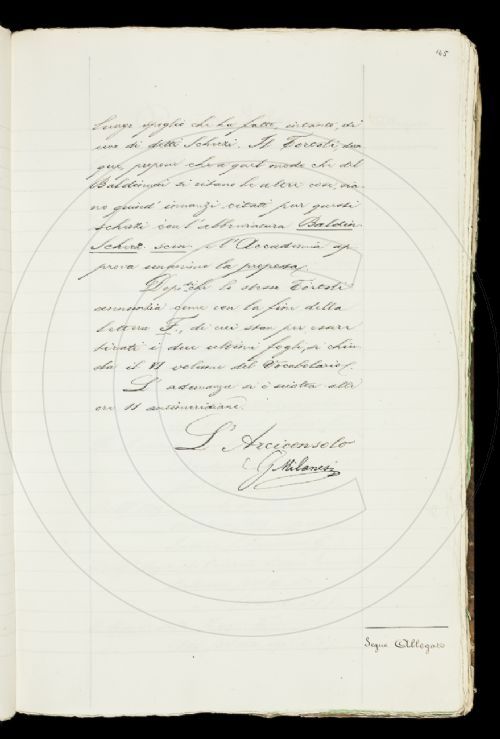 145
lungo spoglio che ha fatto, intanto, di
uno di detti Scherzi. Il Tortoli, dun
que, propone che a quel modo che del
Baldinucci si citano le altre cose, sia
no quind' innanzi citati pur questi
scherzi con l'abbreviatura Baldin.
Scherz. scen. e l'Accademia ap
prova unanime la proposta.
Dopo che lo stesso Tortoli
annunzia come con la fine della
lettera F, di cui stan per essere
tirati i due ultimi fogli, si chiu
da il VI volume del Vocabolario.
L'adunanza si è sciolta alle
ore 11 antimeridiane.
L'Arciconsolo
G Milanesi
Segue Allegato